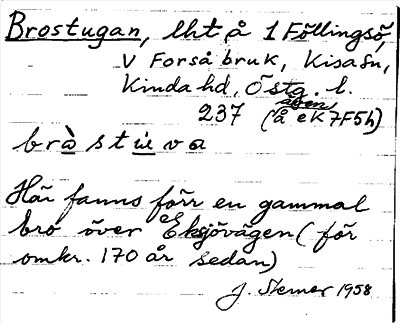 Brostugan, lht å 1 Föllingsö,
V Forså bruk, Kisa sn,
Kinda hd, Östg. l.
237 (även å eK 7F5h)
brò̲stu̲va
Här fanns förr en gammal
bro över Eksjövägen (för
omkr. 170 år sedan)
J. Sterner 1958